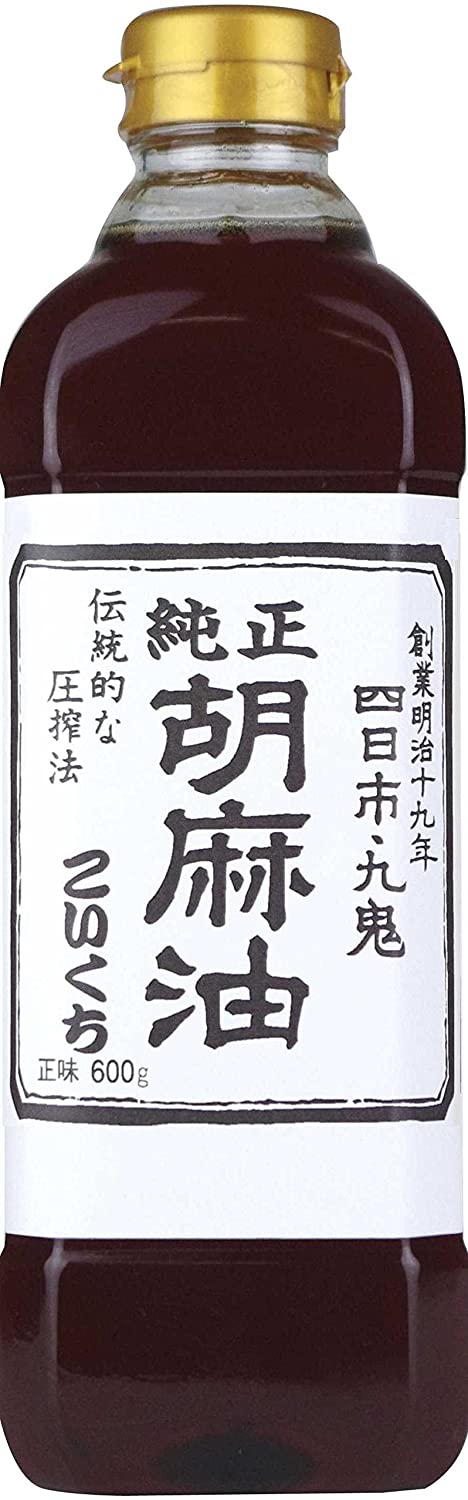 創業明治十九年
四日市・九鬼
純正
胡麻油
伝統的な
圧搾法
こいくち
正味 600g